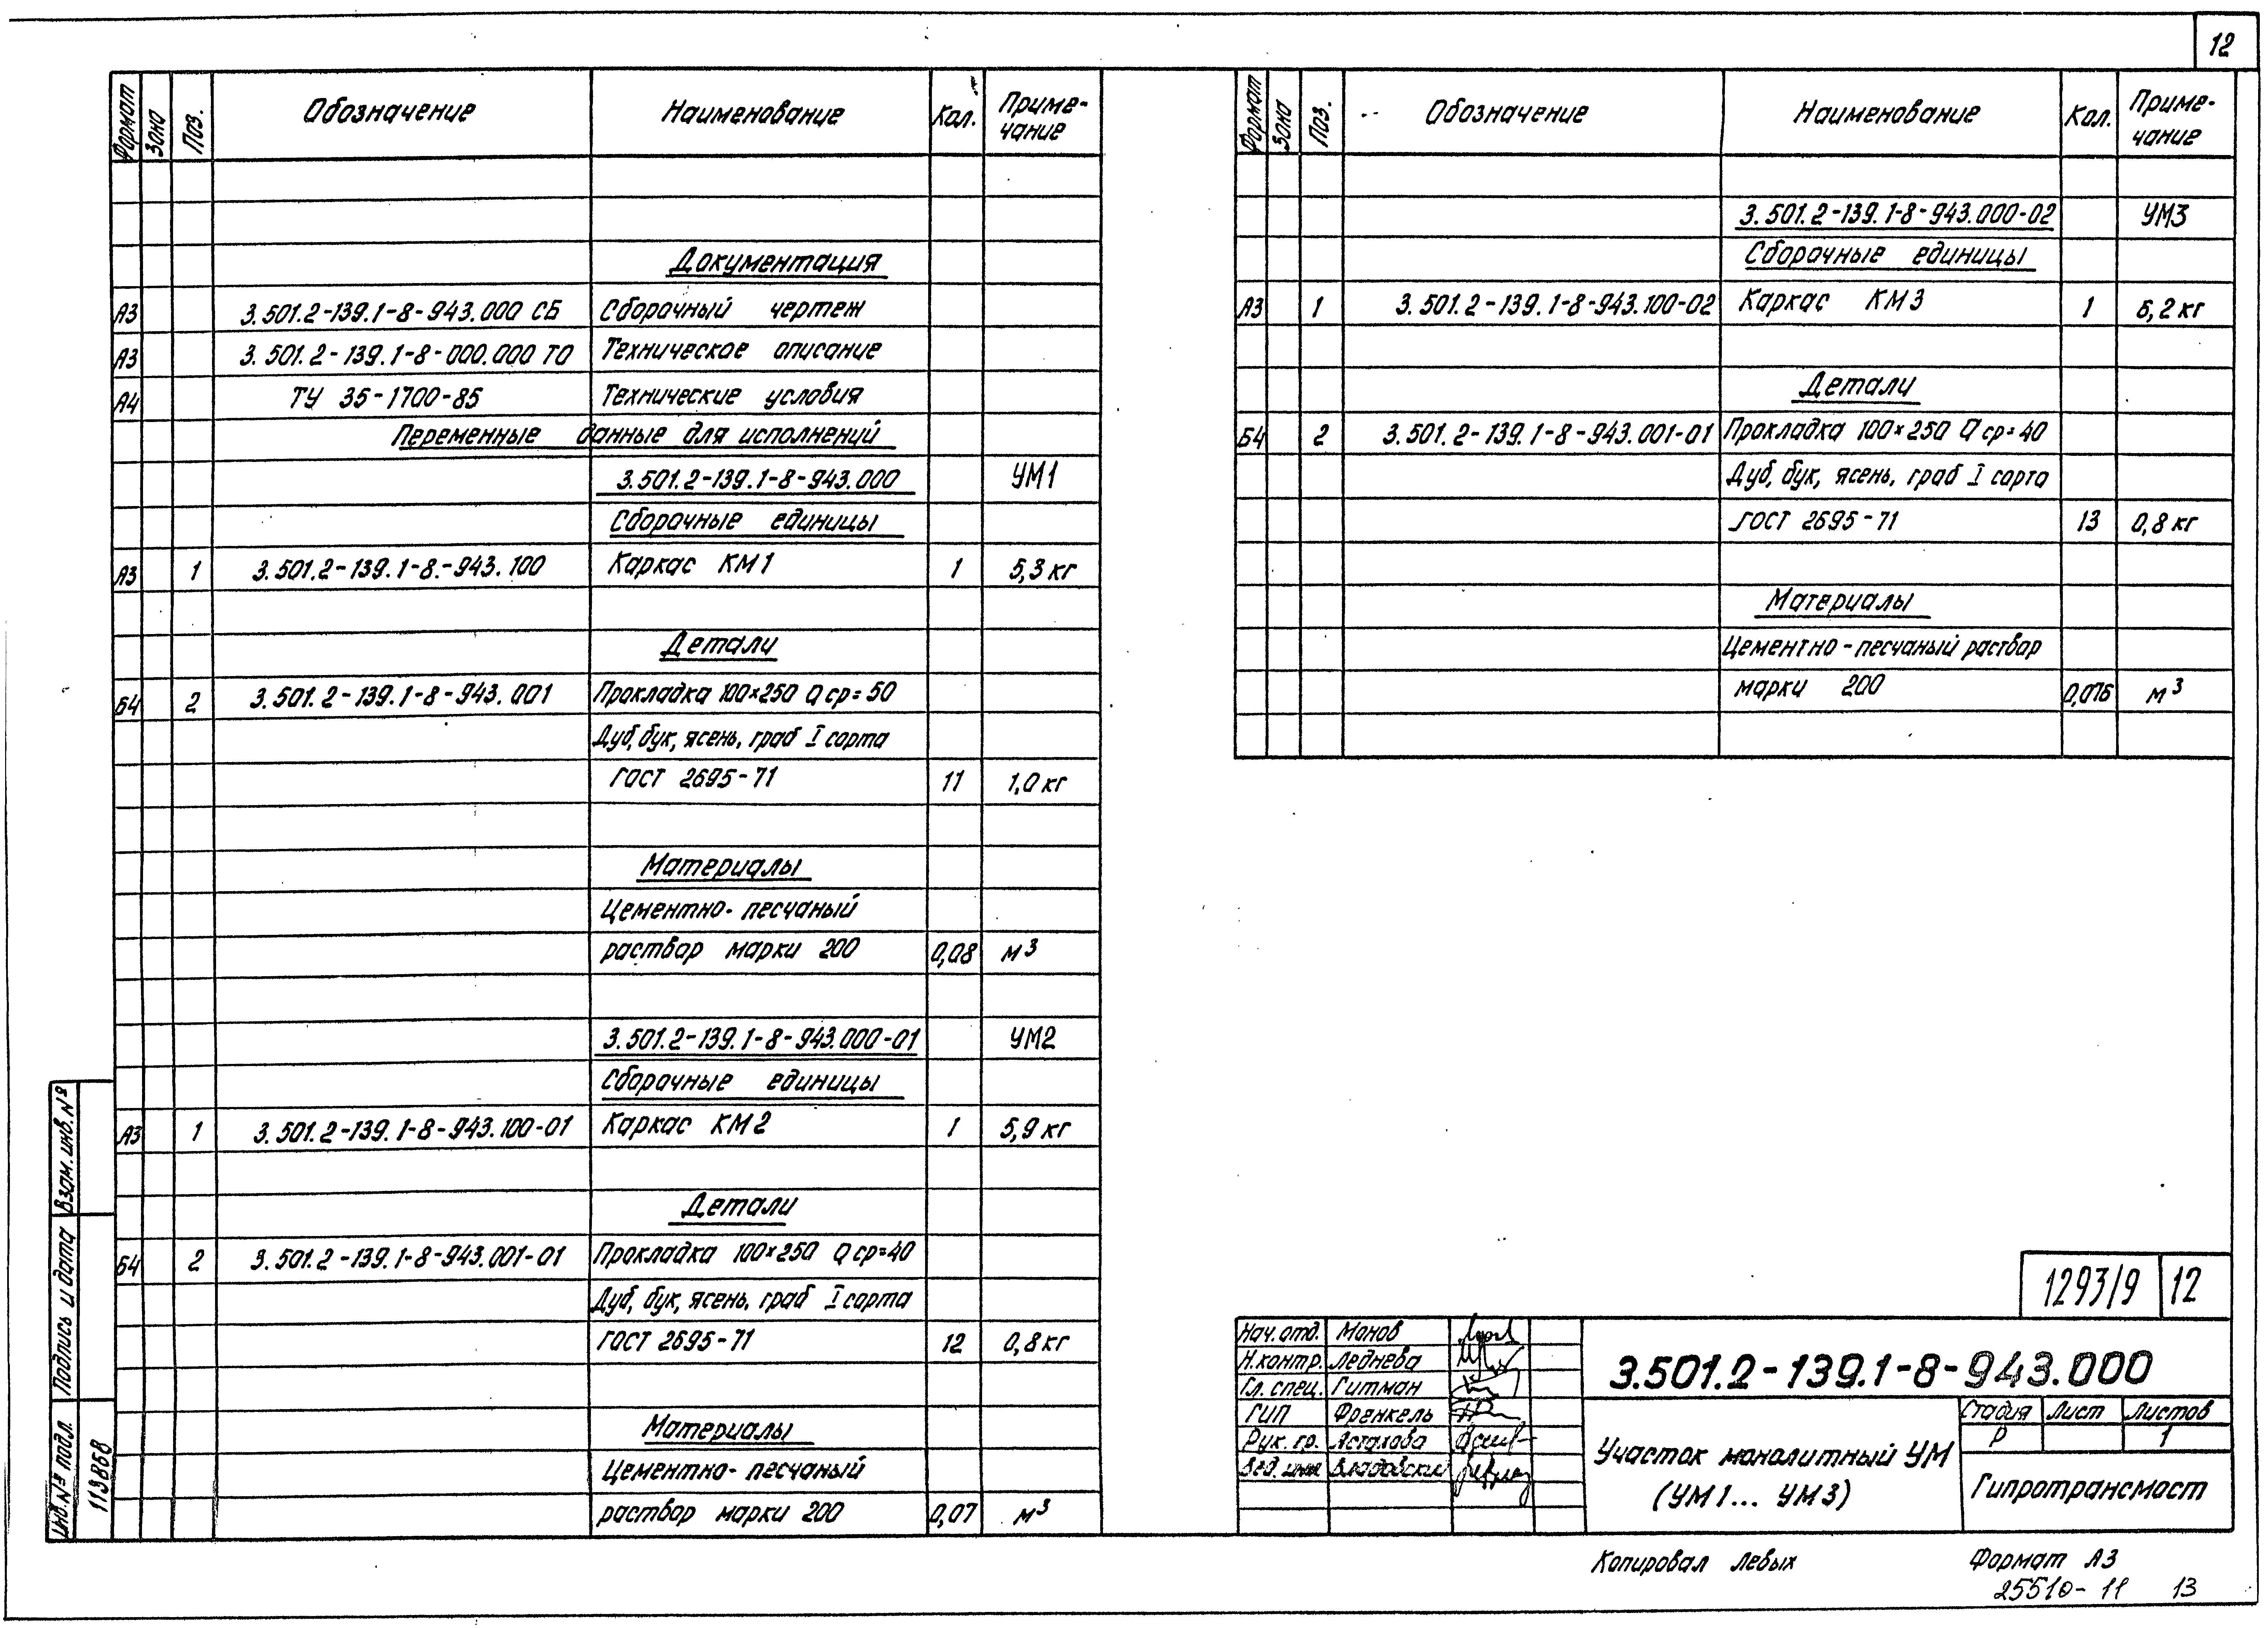 12
Формат Зона Поз. Обозначение Наименование Кол. Приме-
чание
Документация
А3 3.501.2-139.1-8-943.000 СБ Сборочный чертеж
А3 3.501.2-139.1-8-000.000 ТО Техническое описание
А4 ТУ 35-1700-85 Технические условия
Переменные данные для исполнений
3.501.2-139.1-8-943.000 УМ1
Сборочные единицы
А3 1 3.501.2-139.1-8-943.100 Каркас КМ1 1 5,3 кг
Детали
Б4 2 3.501.2-139.1-8-943.001 Прокладка 100×250 Q ср=50
Дуб, бук, ясень, граб I сорта
ГОСТ 2695-71 11 1,0 кг
Материалы
Цементно-песчаный
раствор марки 200 0,08 м³
3.501.2-139.1-8-943.000-01 УМ2
Сборочные единицы
А3 1 3.501.2-139.1-8-943.100-01 Каркас КМ2 1 5,9 кг
Детали
Б4 2 3.501.2-139.1-8-943.001-01 Прокладка 100×250 Q ср=40
Дуб, бук, ясень, граб I сорта
ГОСТ 2695-71 12 0,8 кг
Материалы
Цементно-песчаный
раствор марки 200 0,07 м³
Формат Зона Поз. Обозначение Наименование Кол. Приме-
чание
3.501.2-139.1-8-943.000-02 УМ3
Сборочные единицы
А3 1 3.501.2-139.1-8-943.100-02 Каркас КМ3 1 6,2 кг
Детали
Б4 2 3.501.2-139.1-8-943.001-01 Прокладка 100×250 Q ср=40
Дуб, бук, ясень, граб I сорта
ГОСТ 2695-71 13 0,8 кг
Материалы
Цементно-песчаный раствор
марки 200 0,076 м³
Взам. инв. №
Подпись и дата
Инв. № подл.
113868
1293/9 12
Нач. отд. Монов
Н. контр. Леднева
Гл. спец. Гитман
ГИП Френкель
Рук. гр. Астахова
Вед. инж
3.501.2-139.1-8-943.000
Участок монолитный УМ
(УМ1... УМ3)
Стадия Лист Листов
Р 1
Гипротрансмост
Копировал Левых Формат А3
25510-11 13